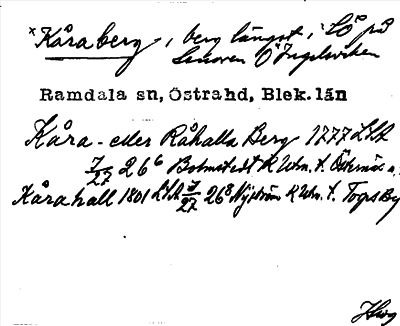 *Kåraberg, berg längst i SÖ på
Senoren Ö Ingelsviken
Ramdala sn, Östra hd, Blek. län
Kåra- eller Råhalla Berg 1777 LSA
J/27 26⁶ Bohnstedt K Utm. t. Östernäs
Kårahall 1801 LSA J/27 26⁸ Nyström K Utm. t. Torps By